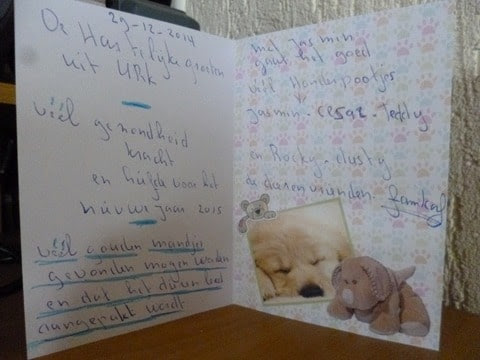 29-12-2014
De Hartelijke groeten
uit URK
véél gezondheid
kracht
en hulp voor het
nieuwe jaar 2015
véél gouden mandjes
gevonden mogen worden
en dat het dieren leed
aangepakt wordt
met Jasmin
gaat het goed
véél Hondenpootjes
Jasmin - Cesar - Teddy
en Rocky - dusty
de dierenvrienden